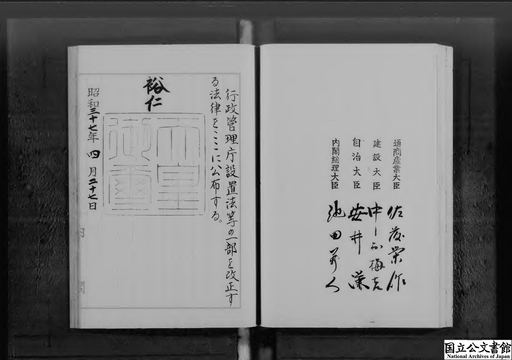 行政管理庁設置法等の一部を改正す
る法律をここに公布する。
裕仁
天皇
御璽
昭和三十七年四月二十七日
内閣
通商産業大臣 佐藤栄作
建設大臣 中村梅吉
自治大臣 安井謙
内閣総理大臣 池田勇人
国立公文書館
National Archives of Japan